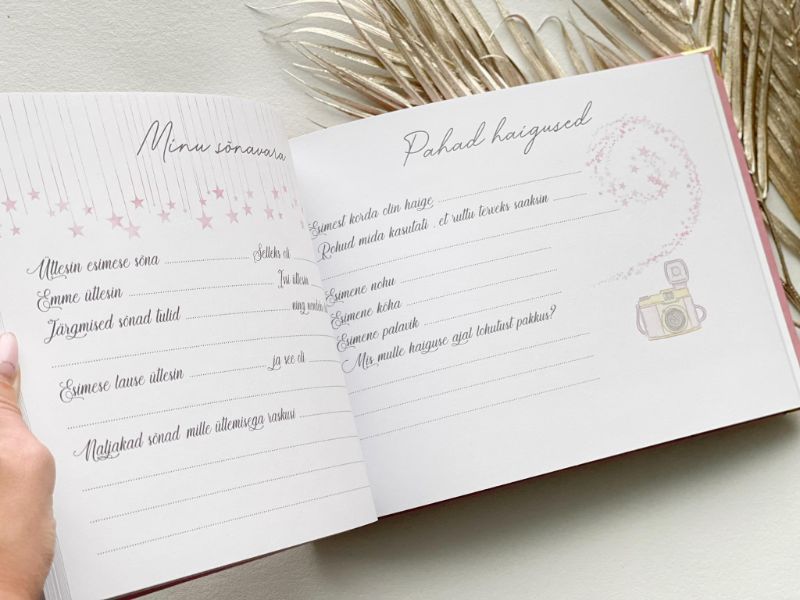 Minu sõnavara
Ütlesin esimese sõna Selleks oli
Emme ütlesin Issi ütlesin
Järgmised sõnad tulid ning nendeks
Esimese lause ütlesin ja see oli
Naljakad sõnad mille ütlemisega raskusi
Pahad haigused
Esimest korda olin haige
Rohud mida kasutati , et ruttu terveks saaksin
Esimene nohu
Esimene köha
Esimene palavik
Mis mulle haiguse ajal lohutust pakkus?